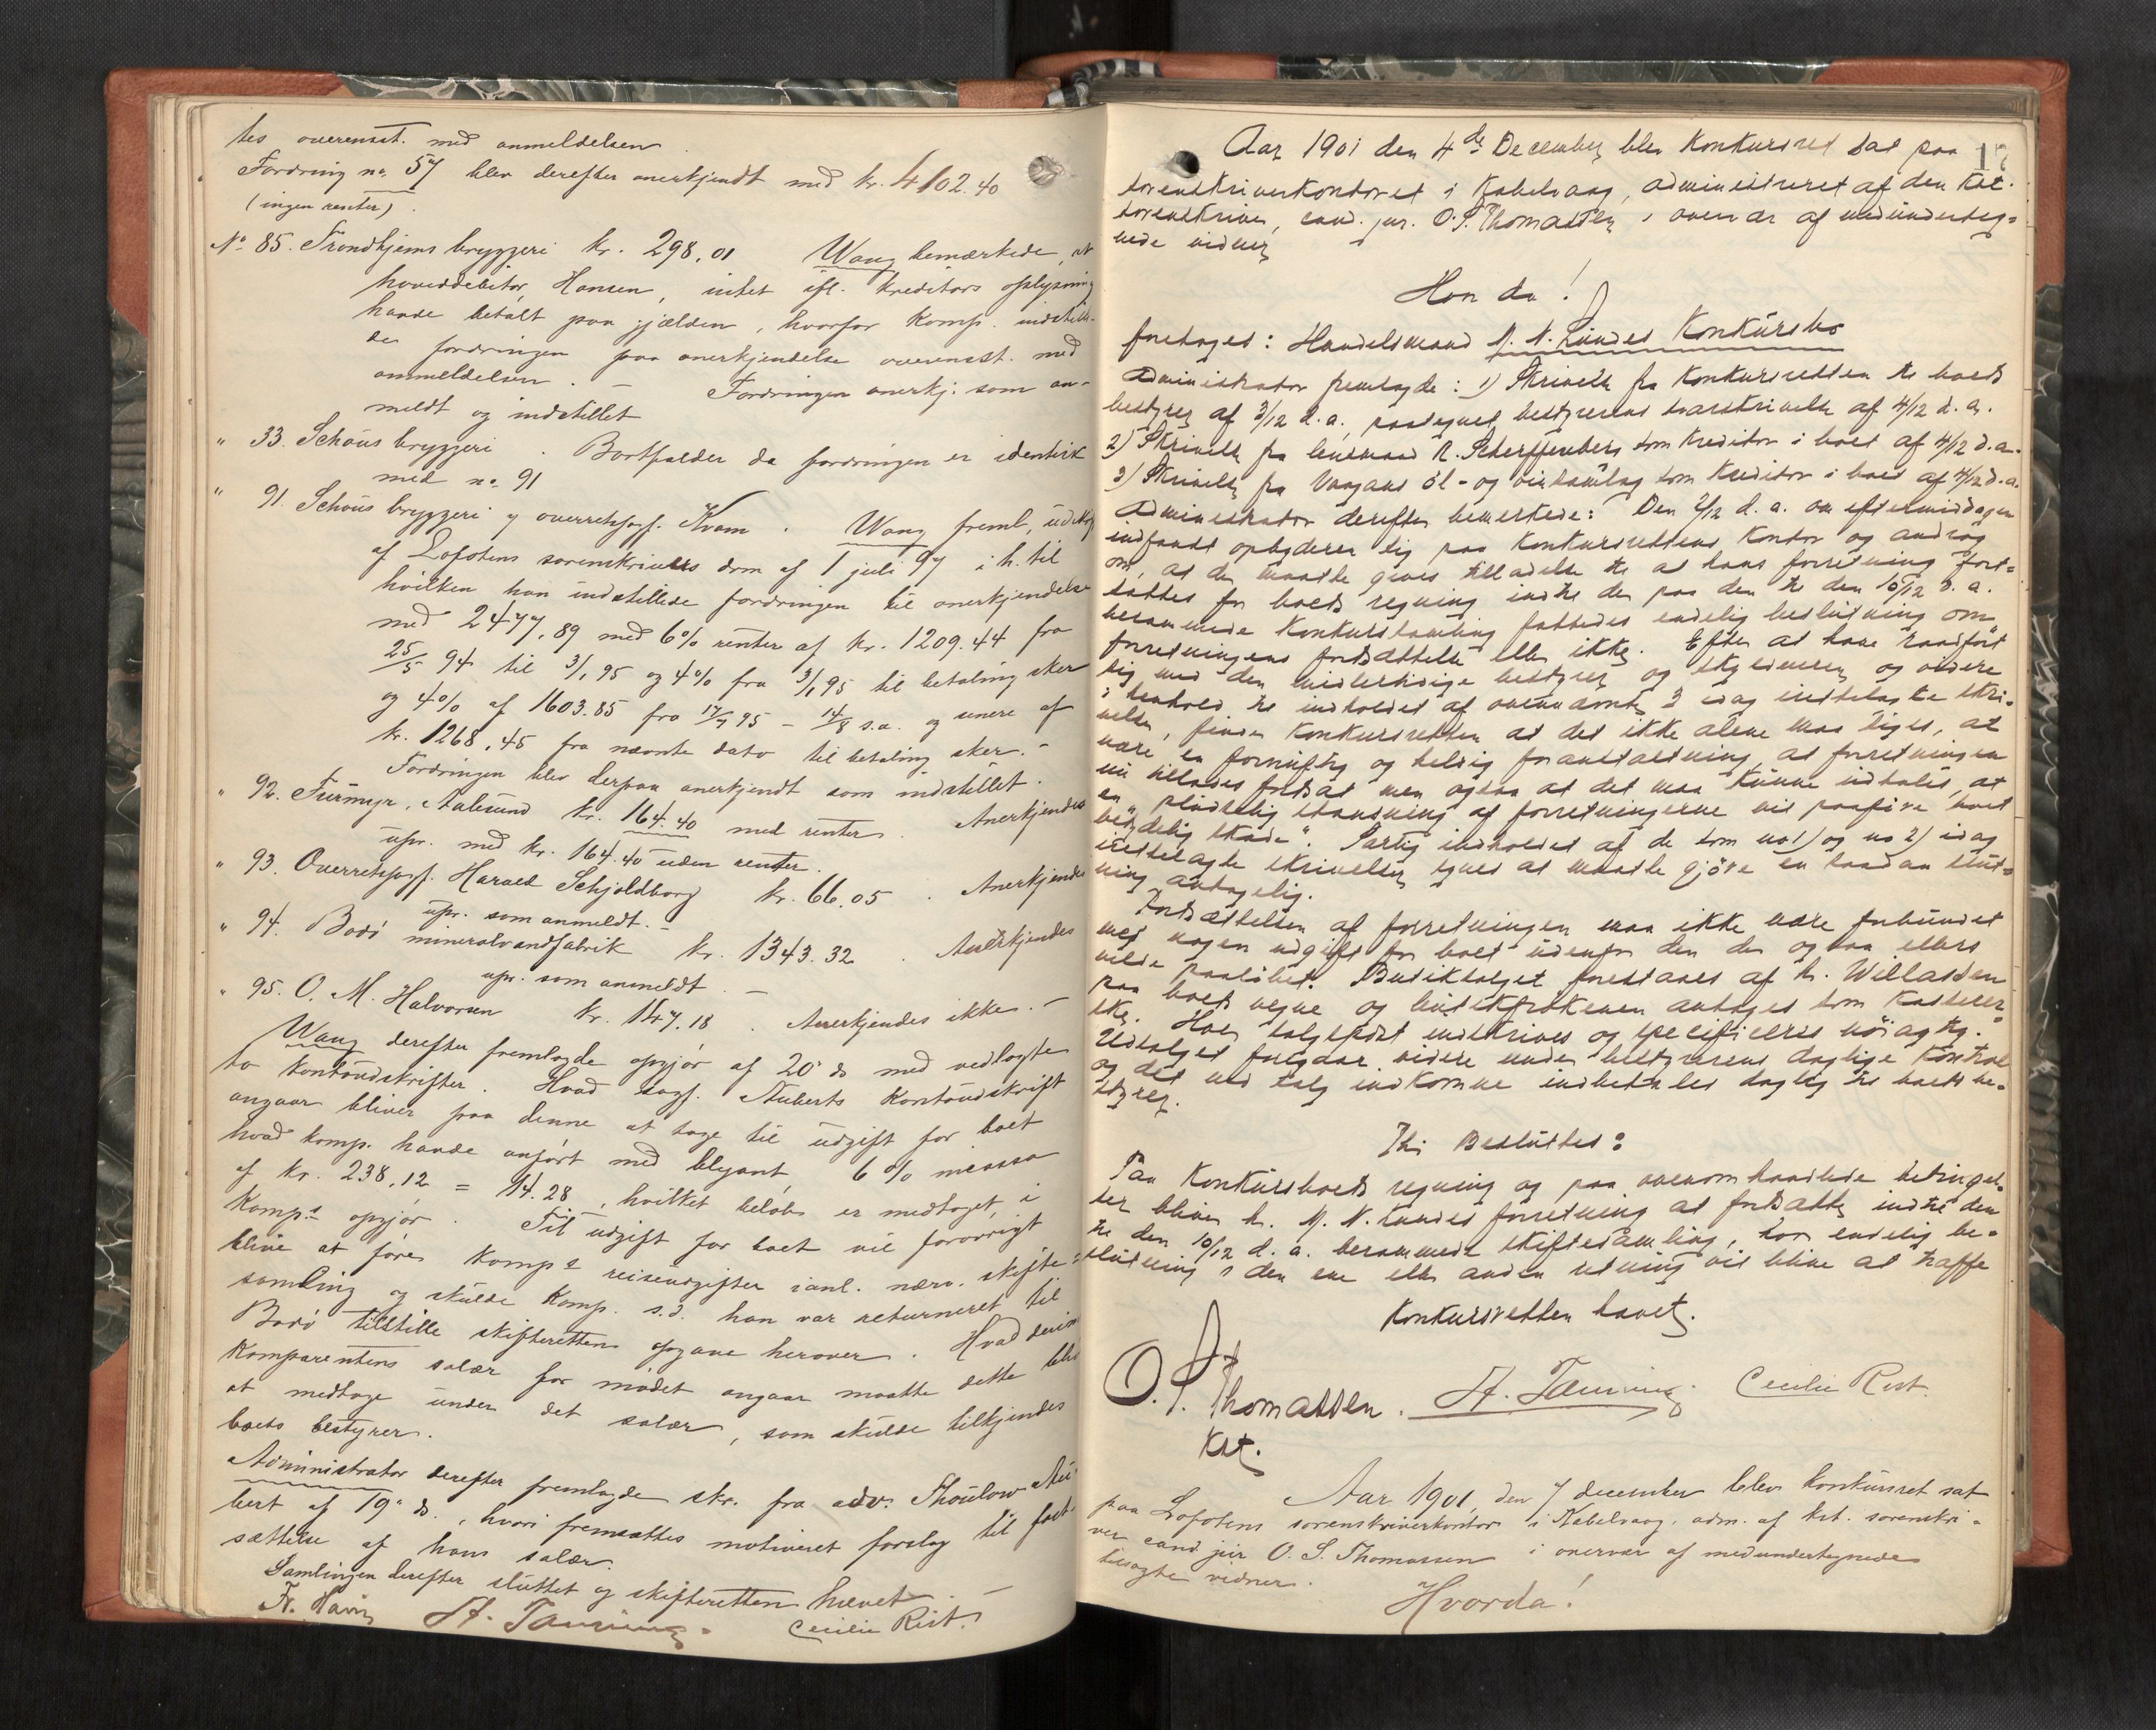 tes overensst. med anmeldelsen
Fordring no. 57 blev derefter anerkjendt med kr. 4102.40
(ingen renter).
No 85. Trondhjems bryggeri kr. 298,01 Wang bemærkede, at
hoveddebitor, Hansen, intet ifl. kreditors oplysning
havde betalt paa gjælden, hvorfor komp. indstill-
der fordringen paa anerkjendelse overensst. med
anmeldelsen. – Fordringen anerkj. som an-
meldt og indstillet
" 33. Schous bryggeri. Bortfalder da fordringen er identisk
med no. 91
" 91. Schous bryggeri v overretssagf. Kvam. Wang freml. udskr.
af Lofotens sorenskriveres dom af 1 juli 97 i h. til
hvilken han indstillede fordringen til anerkjendelse
med 2477,89 med 6% renter af kr. 1209.44 fra
25/5 94 til 3/1 95 og 4% fra 3/1 95 til betaling sker
og 4% af 1603.85 fra 17/7 95 – 14/8 s.a. og senere af
kr. 1268,45 fra nævnte dato til betaling sker. –
Fordringen blev derpaa anerkjendt som indstillet.
" 92. Furmyr, Aalesund kr. 164.40 med renter. Anerkjendes
upr. med kr. 164.40 uden renter.
" 93. Overretssagf. Harald Schjoldborg kr. 66.05. Anerkjendes
upr. som anmeldt. –
" 94. Bodø mineralvandfabrik kr. 1343.32. Anerkjendes
upr. som anmeldt. –
" 95. O. M. Halvorsen kr. 147.18. Anerkjendes ikke. –
Wang derefter fremlagde opgjør af 20 ds med vedlagte
to kontoudskrifter. Hvad sagf. Auberts kontoudskrift
angaar bliver paa denne at tage til udgift for boet
hvad komp. havde anført med blyant, 6% incasso
af kr. 238,12 = 14.28, hvilket beløb er medtaget i
komp.s opgjør. Til udgift for boet vil forøvrigt
blive at føre komps reiseudgifter i anl. nærv. skifte=
samling og skulde komp. s.s. han var returneret til
Bodø tilstille skifteretten opgave herover. Hvad
komparentens salær for mødet angaar maatte dette blive
at medtage under det salær, som skulde tilkjendes
boets bestyrer.
Administrator derefter fremlagde skr. fra adv. Thoulow Au-
bert af 19 ds., hvori fremsattes motiveret forslag til fast-
sættelse af hans salær.
Samlingen derefter sluttet og skifteretten hævet. –
A. Tanning. Cecilie Rist.
Aar 1901 den 4de December blev Konkursret sat paa
sorenskriverkontoret i Kabelvaag, administreret af den kst.
sorenskriver, cand. jur. O. S. Thomassen i overvær af medunderteg=
nede vidner
Hvor da!
foretoges: Handelsmand M. N. Lundes Konkursbo
Administrator fremlagde: 1) Skrivelse fra Konkursretten til boets
bestyrer af 3/12 d.a., paategnet bestyrerens svarskrivelse af 4/12 d.a.
2) Skrivelse fra lensmand R. Scherffenberg som kreditor i boet af 4/12 d.a.
3) Skrivelse fra Vaagans øl- og vinsamlag som kreditor i boet af 4/12 d.a.
Administrator derefter bemerkede: Den 2/12 d.a. om eftermiddagen
indfandt opbyderen sig paa Konkursrettens Kontor og androg
om, at der maatte gives tilladelse til at hans forretning fort=
sattes for boets regning indtil der paa den til den 10/12 d.a.
berammede Konkurssamling fattedes endelig beslutning om
forretningens fortsættelse eller ikke. Efter at have raadført
sig med den midlertidige bestyrer og skyldneren og videre
i henhold til indholdet af ovennævnte 3 idag indtelagte skri-
velser, finder Konkursretten at det ikke alene maa siges, at
være en fornuftig og heldig foranstaltning, at forretningen
nu tillades fortsat men ogsaa at det maa kunne udtales, at
en "pludselig standsning af forretningerne vil paaføre boet
betydelig skade". Særlig indholdet af de som no 1) og no 2) idag
irettelagte skrivelser synes at maatte gjøre en saadan slut=
ning antagelig.
Fortsættelsen af forretningen maa ikke være forbundet
med nogen udgift for boet udenfor den der ogsaa ellers
vilde paaløbet. Butiksalget forestaaes af hr. Willassen
paa boets vegne og butikfrøkenen antages som kasserer=
ske. Hver salgspost indskrives og specificeres nøiagtig.
Udsalget foregaar videre under bestyrerens daglige kontrol
og det ved salg indkomne indbetales daglig til boets be=
styrer.
Thi Besluttes:
Paa Konkursboets regning og paa ovenomhandlede betingel-
ser bliver hr. M. N. Lundes forretning at fortsætte indtil den
til den 10/12 d.a. berammede skiftesamling, hvor endelig be=
slutning i den ene eller anden retning vil blive at træffe
Konkursretten hævet.
O. S. Thomassen. A. Tanning. Cecilie Rist.
kst.
Aar 1901, den 7 december blev konkursret sat
paa Lofotens sorenskriverkontor i Kabelvaag, adm. af kst. sorenskri-
ver cand jur O. S. Thomassen i overvær af medundertegnede
tilsagte vidner.
Hvorda!